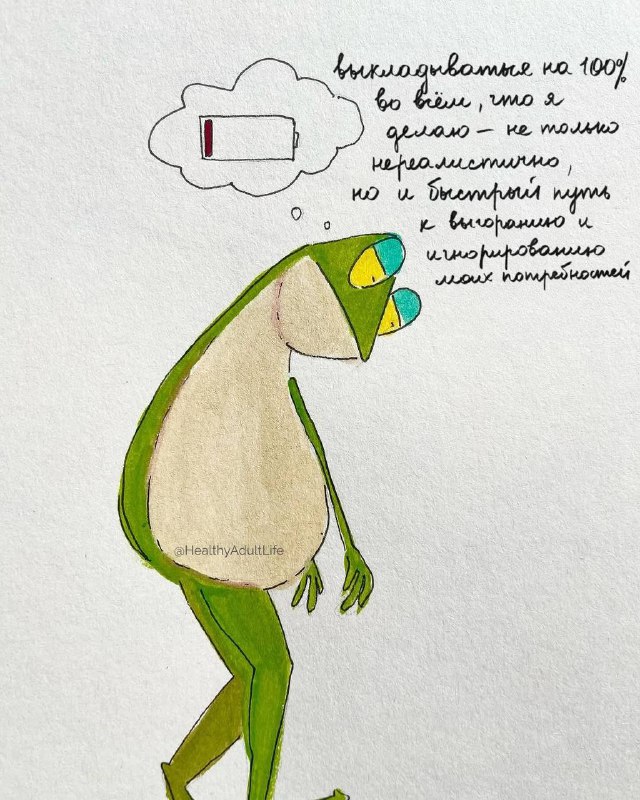 выкладываться на 100%
во всём, что я
делаю — не только
нереалистично,
но и быстрый путь
к выгоранию и
игнорированию
моих потребностей
@HealthyAdultLife